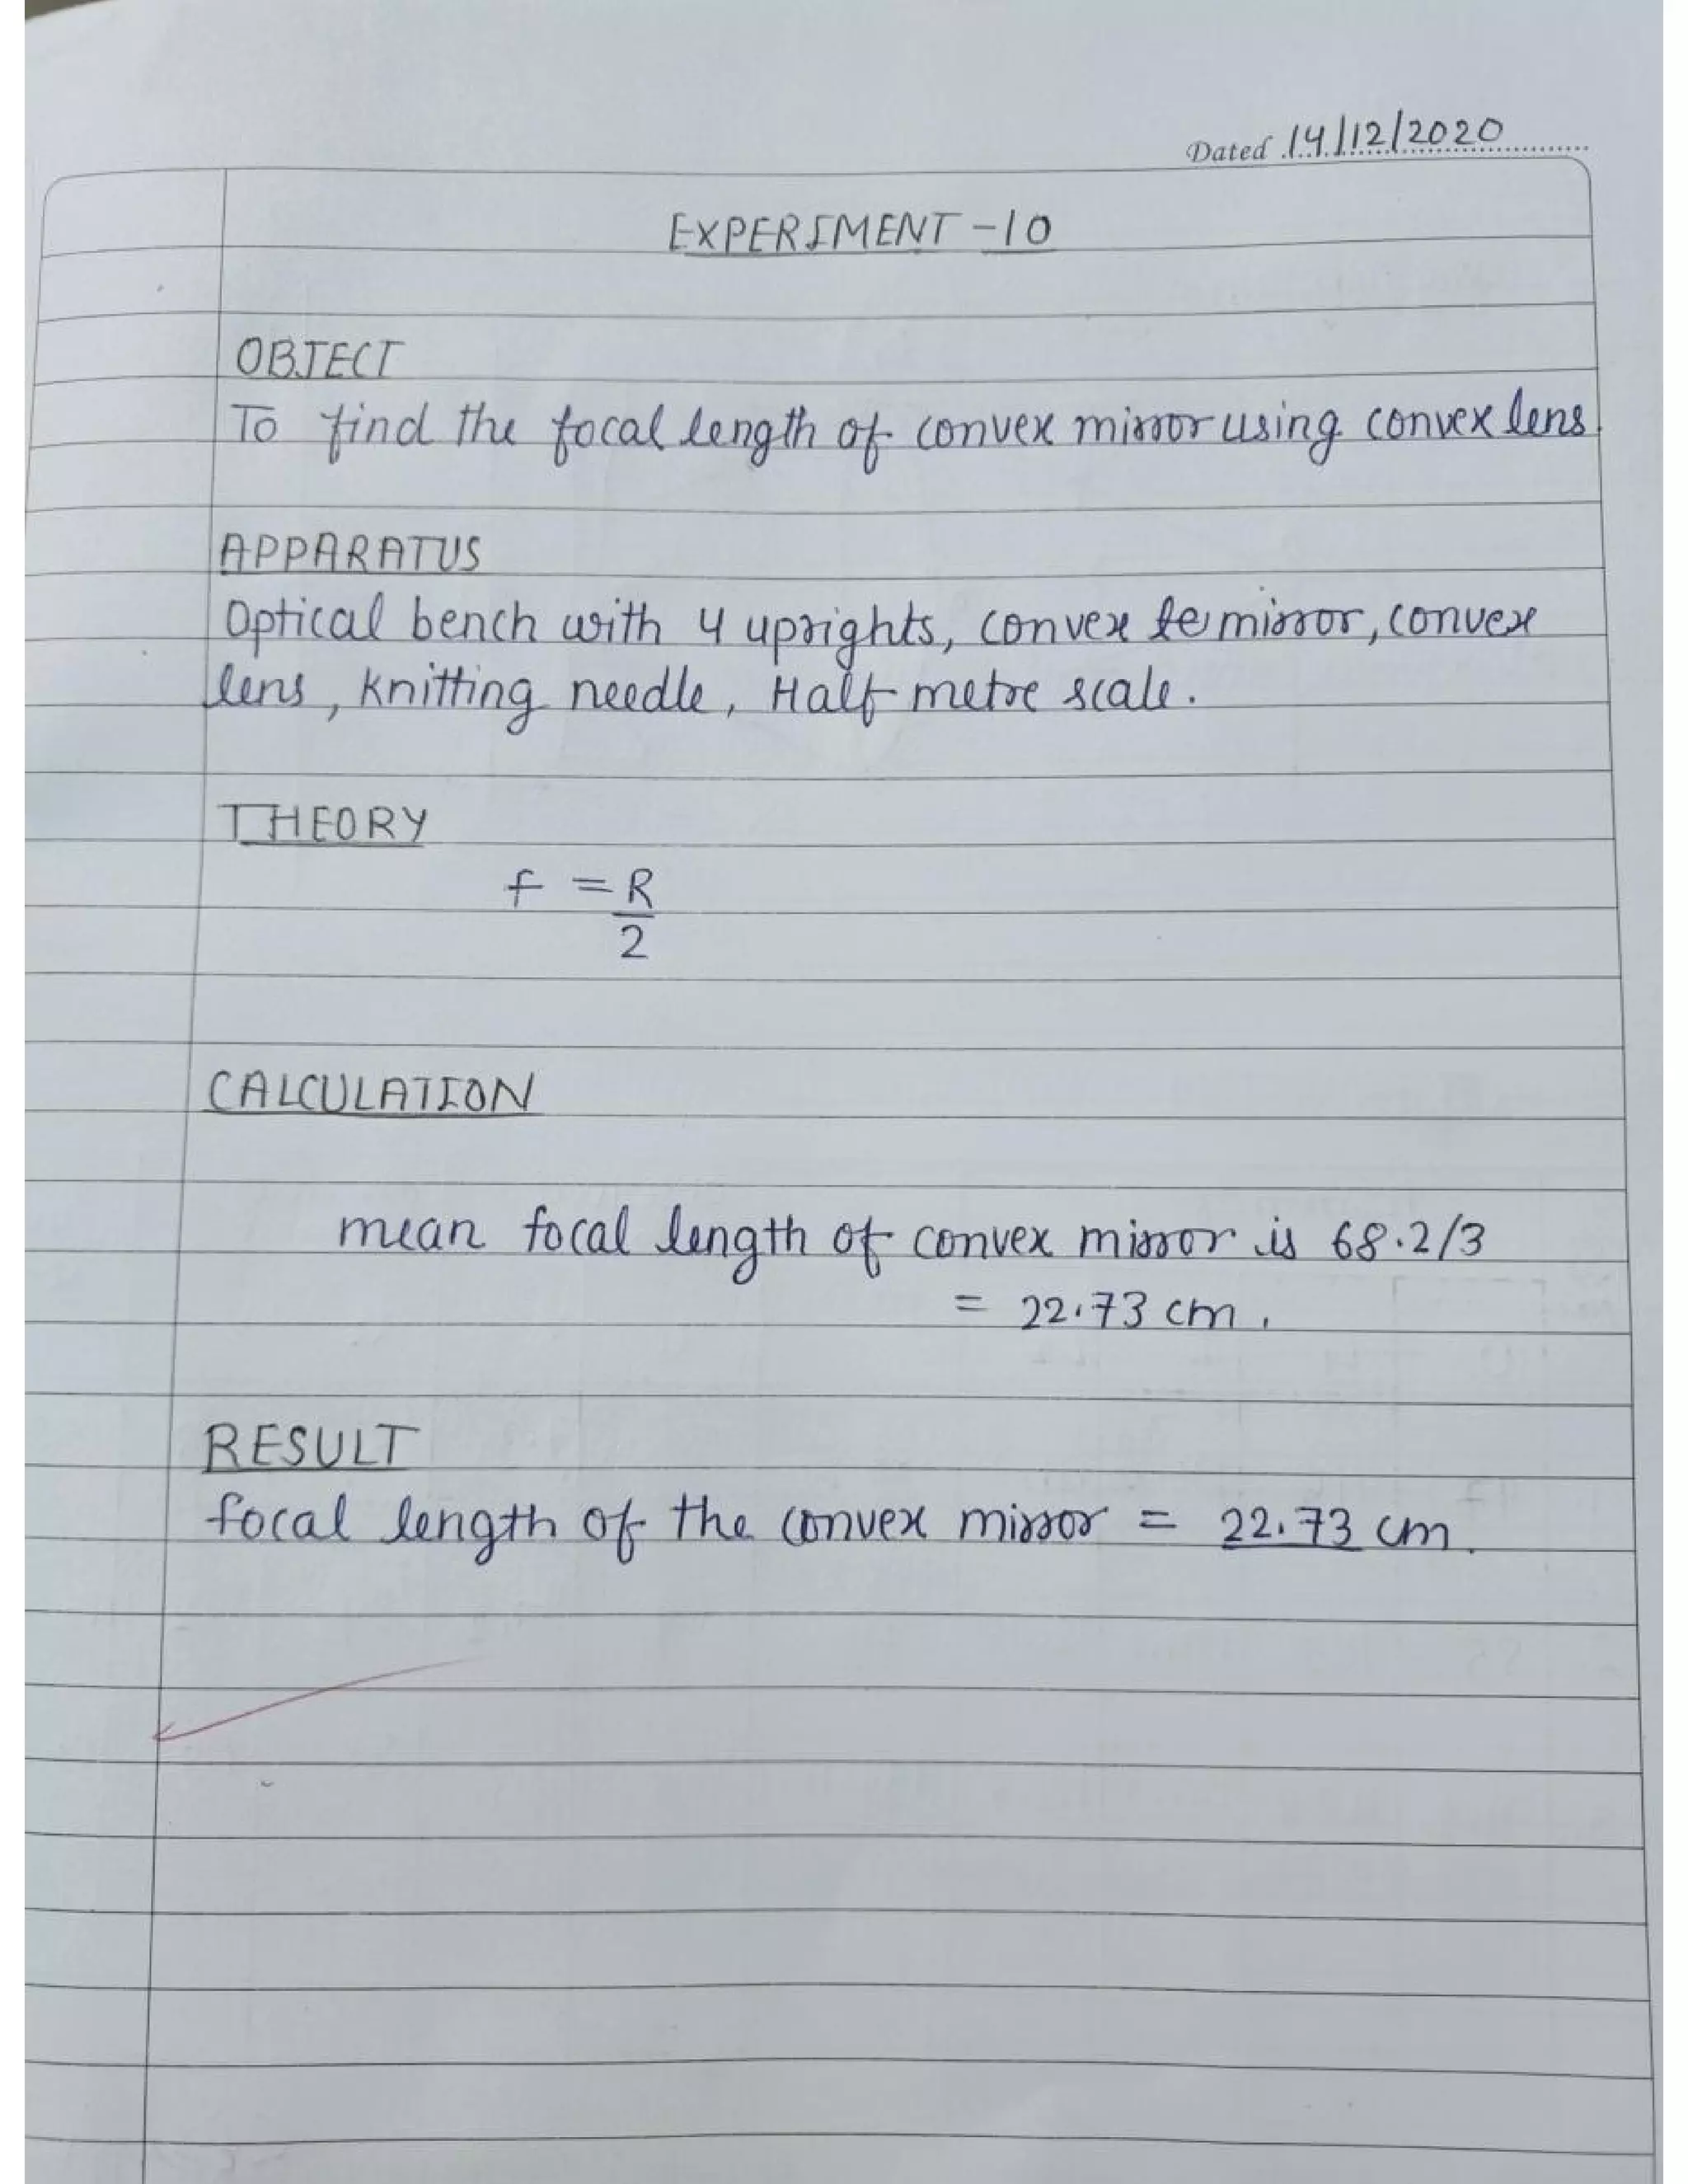 Dated 14/12/2020
EXPERIMENT-10
OBJECT
To find the focal length of convex mirror using convex lens
APPARATUS
Optical bench with 4 uprights, convex le mirror, convex
lens, Knitting needle, Half metre scale.
THEORY
f = R
2
CALCULATION
mean focal length of convex mirror is 68.2/3
= 22.73 cm.
RESULT
focal length of the convex mirror = 22.73 cm.